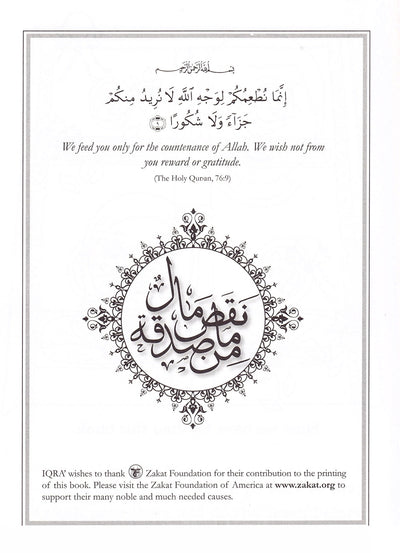 بسم الله الرحمن الرحيم
إِنَّمَا نُطْعِمُكُمْ لِوَجْهِ اللَّهِ لَا نُرِيدُ مِنكُمْ
جَزَاءً وَلَا شُكُورًا ٩
We feed you only for the countenance of Allah. We wish not from
you reward or gratitude.
(The Holy Qur'an, 76:9)
ما نقص مال من صدقة
IQRA' wishes to thank Zakat Foundation for their contribution to the printing
of this book. Please visit the Zakat Foundation of America at www.zakat.org to
support their many noble and much needed causes.